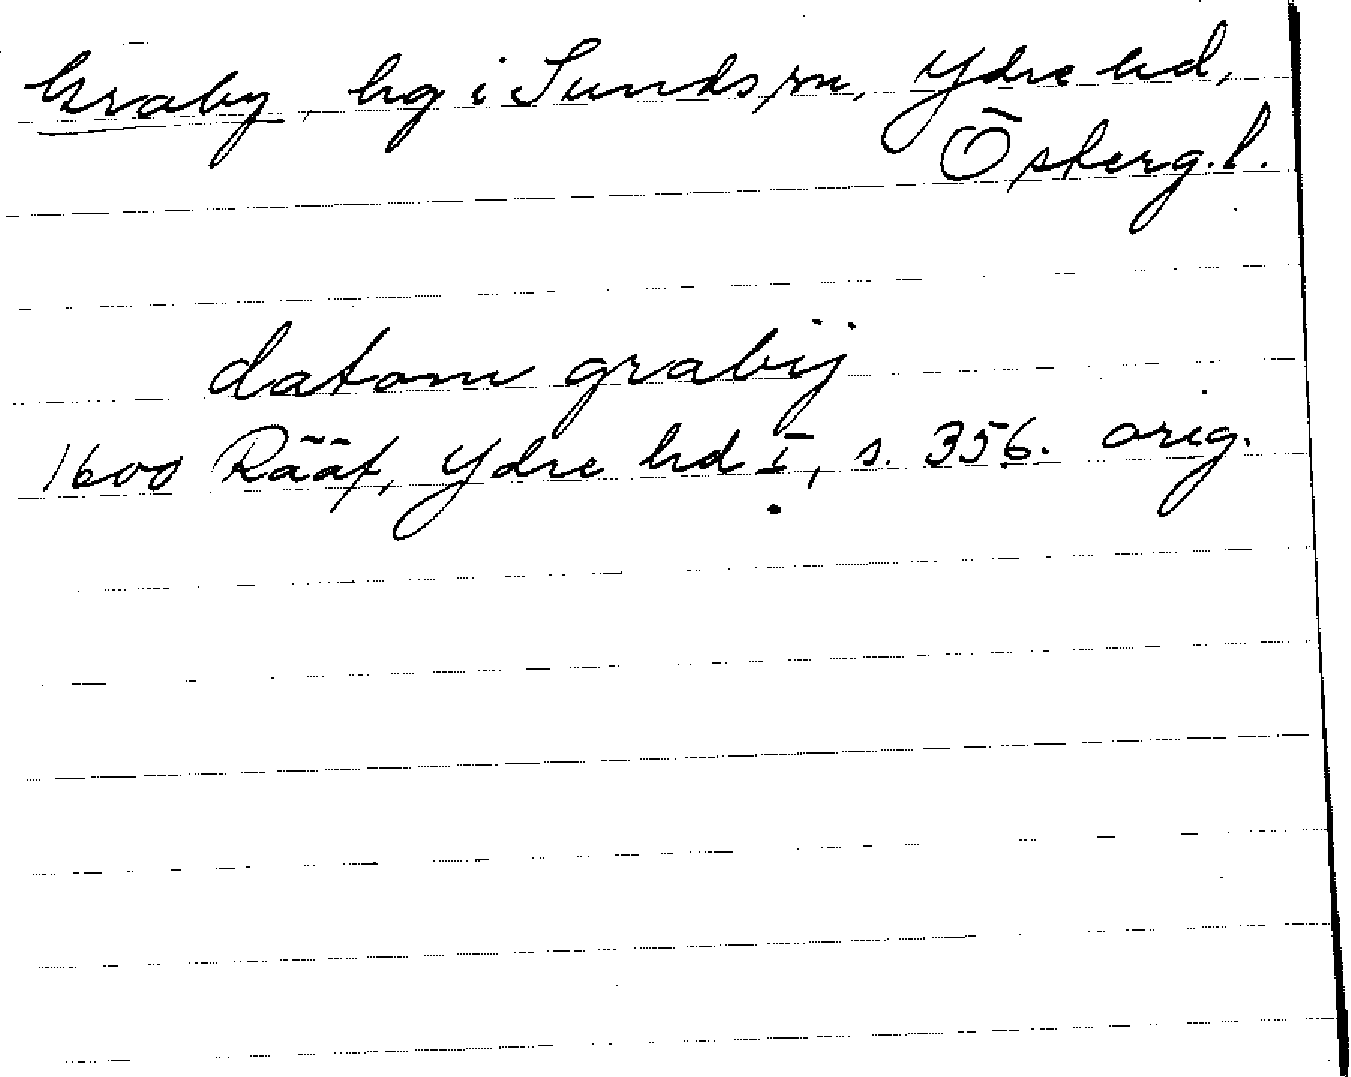 Graby, hg i Sunds sn, Ydre hd,
Österg. l.
datom grabÿ
1600 Rääf, Ydre hd I, s. 356. orig.